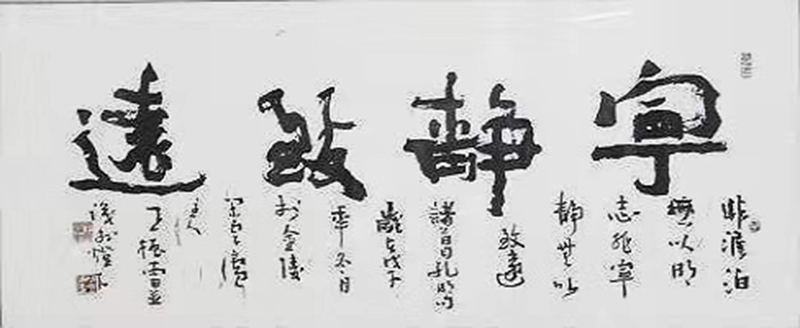 寧靜致遠
非澹泊
無以明
志非寧
靜無以
致遠
諸葛孔明句
歲在戊子
年冬月
於金陵
王振雪並